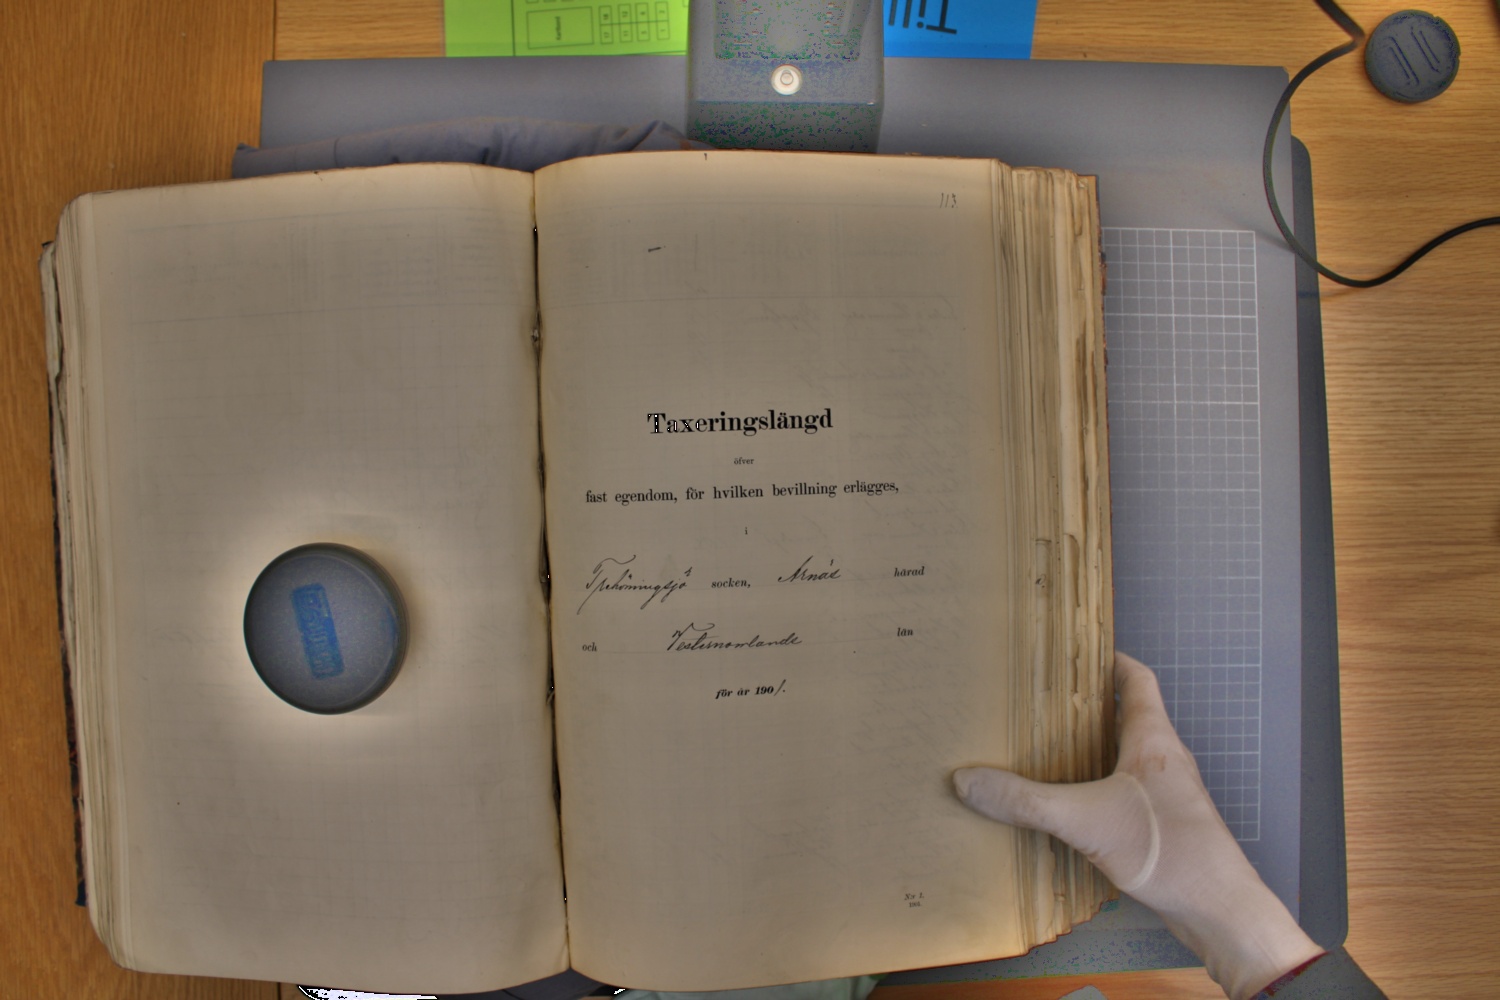 Till
113
Taxeringslängd
öfver
fast egendom, för hvilken bevillning erlägges,
i
Trehörningsjö socken, Arnäs härad
och Vesternorrlands län
för år 1901.
N:r 1.